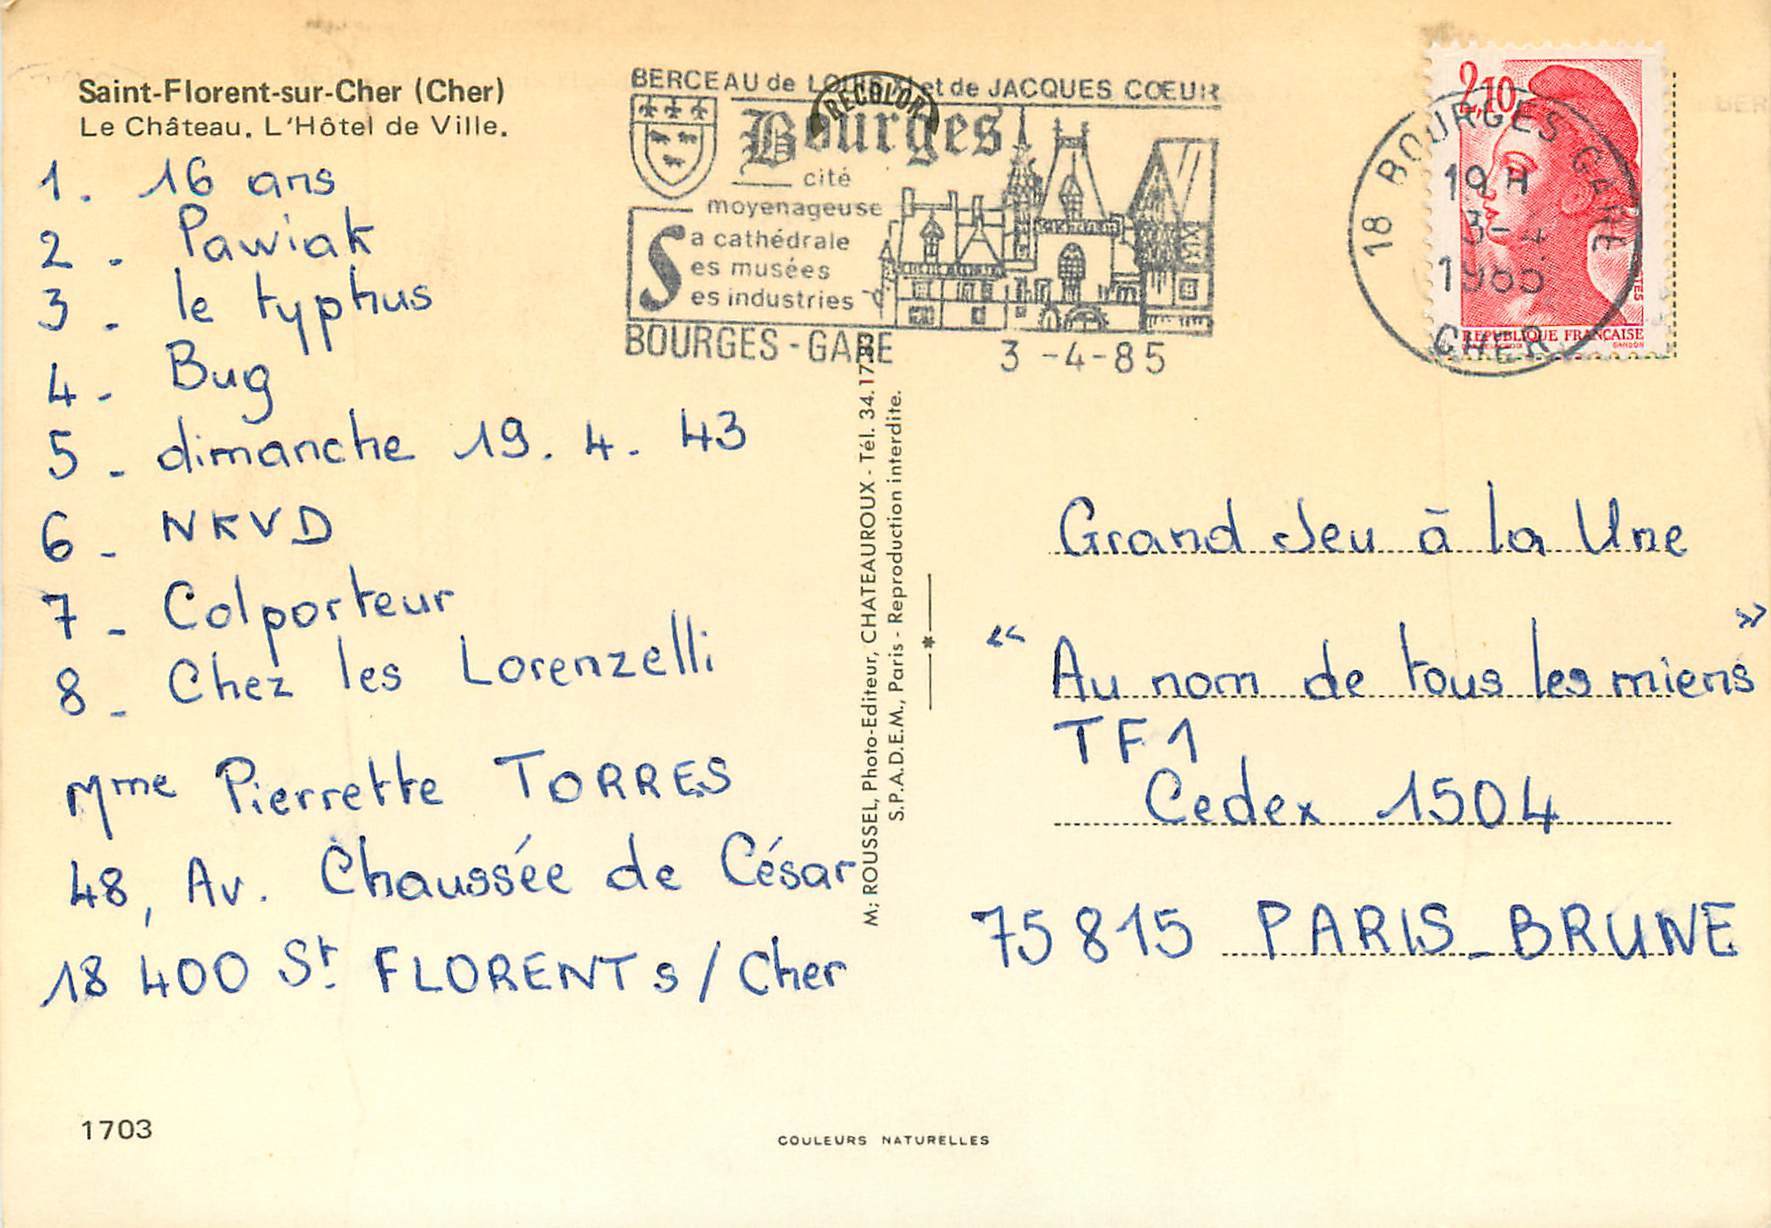 Saint-Florent-sur-Cher (Cher)
Le Château. L'Hôtel de Ville.
1. 16 ans
2. Pawiak
3. le typhus
4. Bug
5. dimanche 19. 4. 43
6. NKVD
7. Colporteur
8. Chez les Lorenzelli
Mme Pierrette TORRES
48, Av. Chaussée de César
18 400 St. FLORENT s/Cher
1703
BERCEAU de LOUIS XI et de JACQUES CŒUR
Bourges
cité
moyenageuse
Sa cathédrale
Ses musées
Ses industries
BOURGES - GARE 3 -4-85
M. ROUSSEL, Photo-Editeur, CHATEAUROUX - Tél. 34.17
S.P.A.D.E.M., Paris - Reproduction interdite.
COULEURS NATURELLES
2,10
REPUBLIQUE FRANÇAISE
18 BOURGES GARE
19 H
3-4
1985
CHER
Grand Jeu à la Une
" Au nom de tous les miens "
TF1
Cedex 1504
75815 PARIS_BRUNE